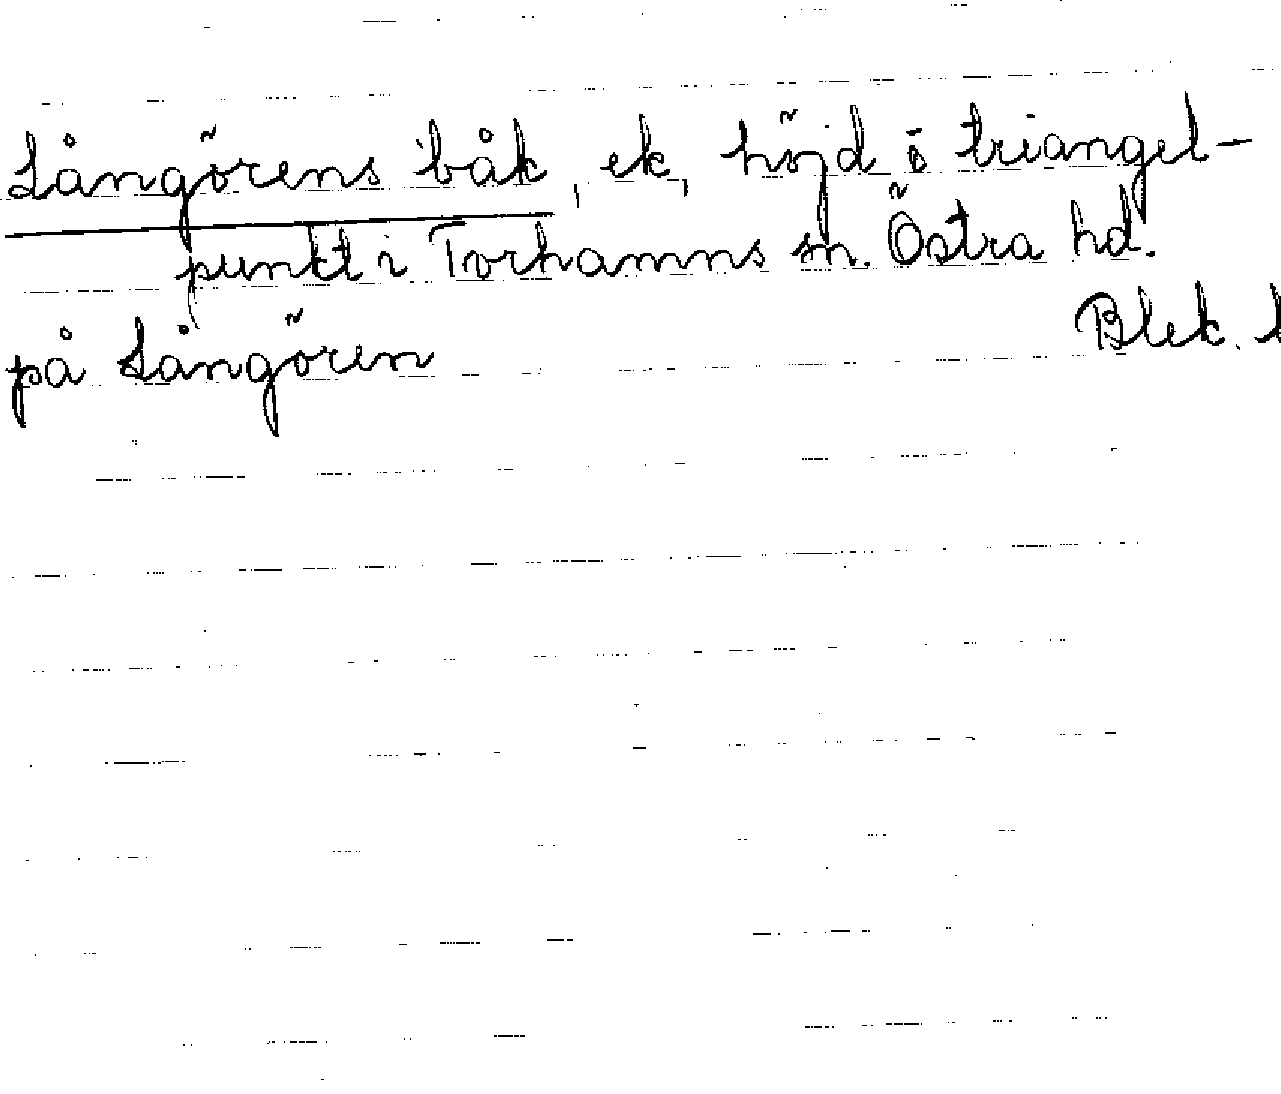 Långörens båk, ek, höjd ö triangel-
punkt i Torhamns sn. Östra hd.
Blek. l
på Långören